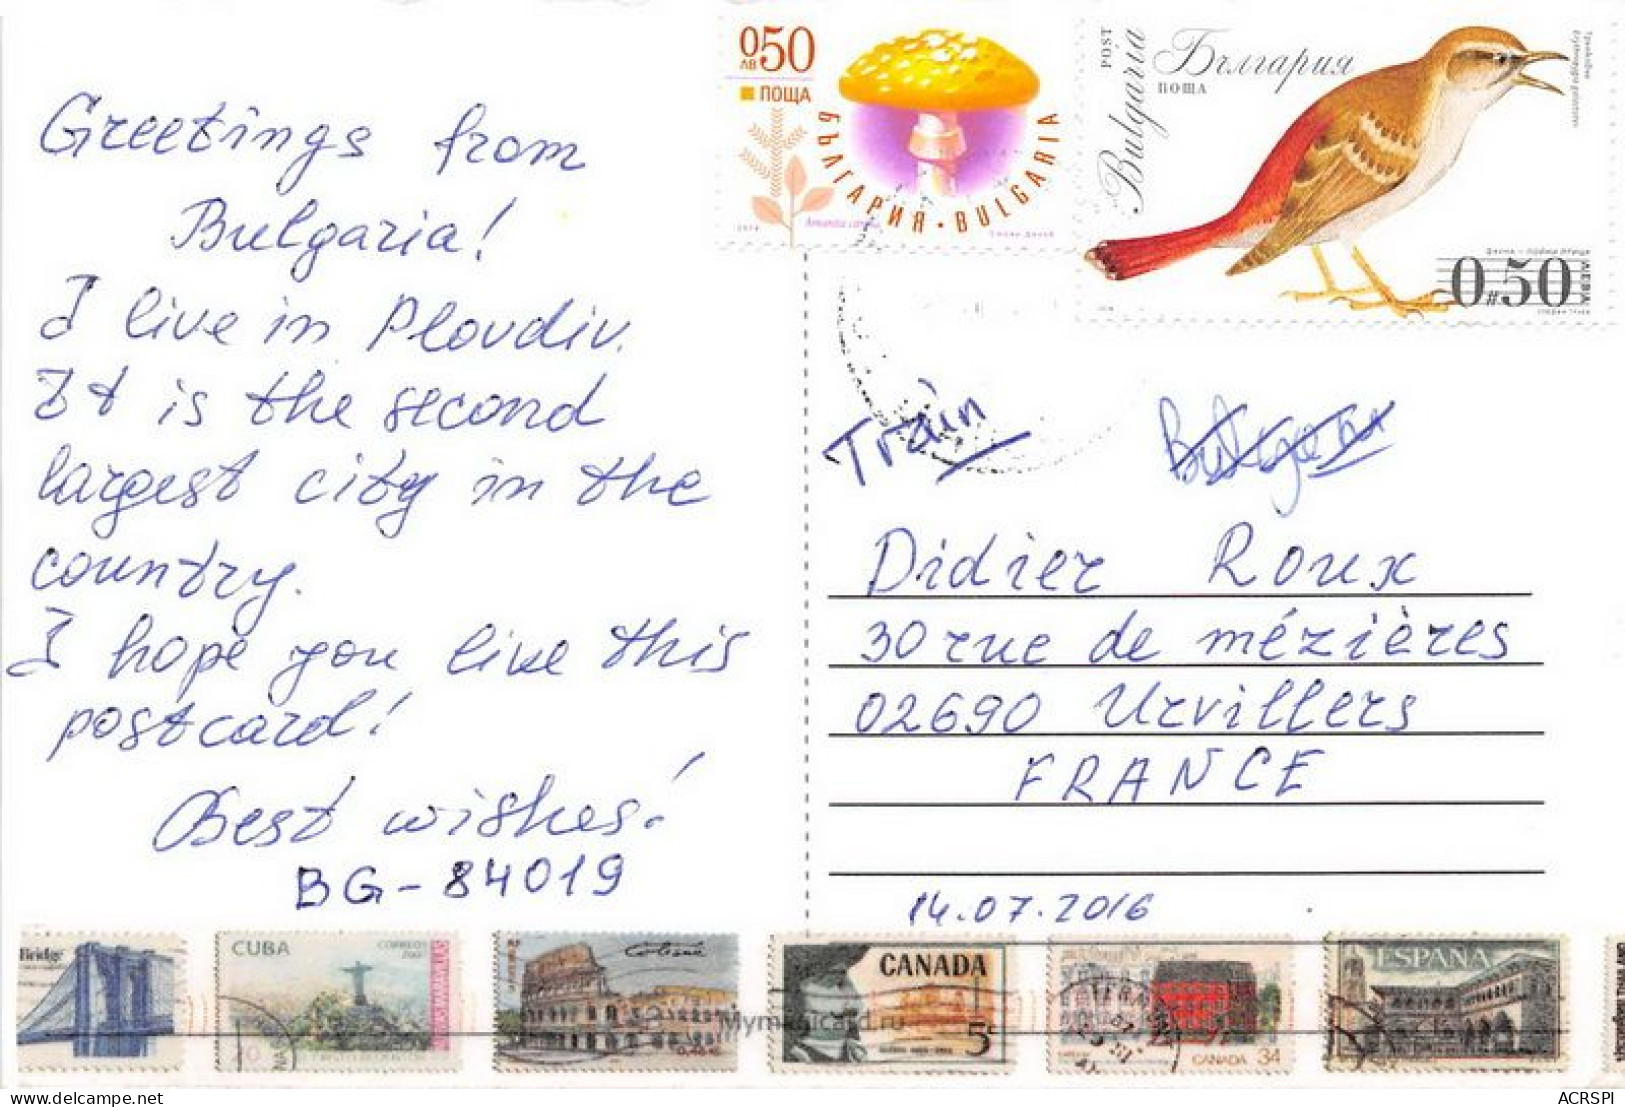 Greetings from
Bulgaria!
I live in Plovdiv.
It is the second
largest city in the
country.
I hope you live this
postcard!
Best wishes!
BG-84019
0.50
ЛВ
ПОЩА
БЪЛГАРИЯ • BULGARIA
POST
Bulgaria
България
ПОЩА
0.50
Train
Didier Roux
30 rue de mézières
02690 Urvillers
FRANCE
14.07.2016
Bridge
CUBA
CORREOS
Colisée
CANADA
5
CANADA 34
ESPAÑA
ACRSPI